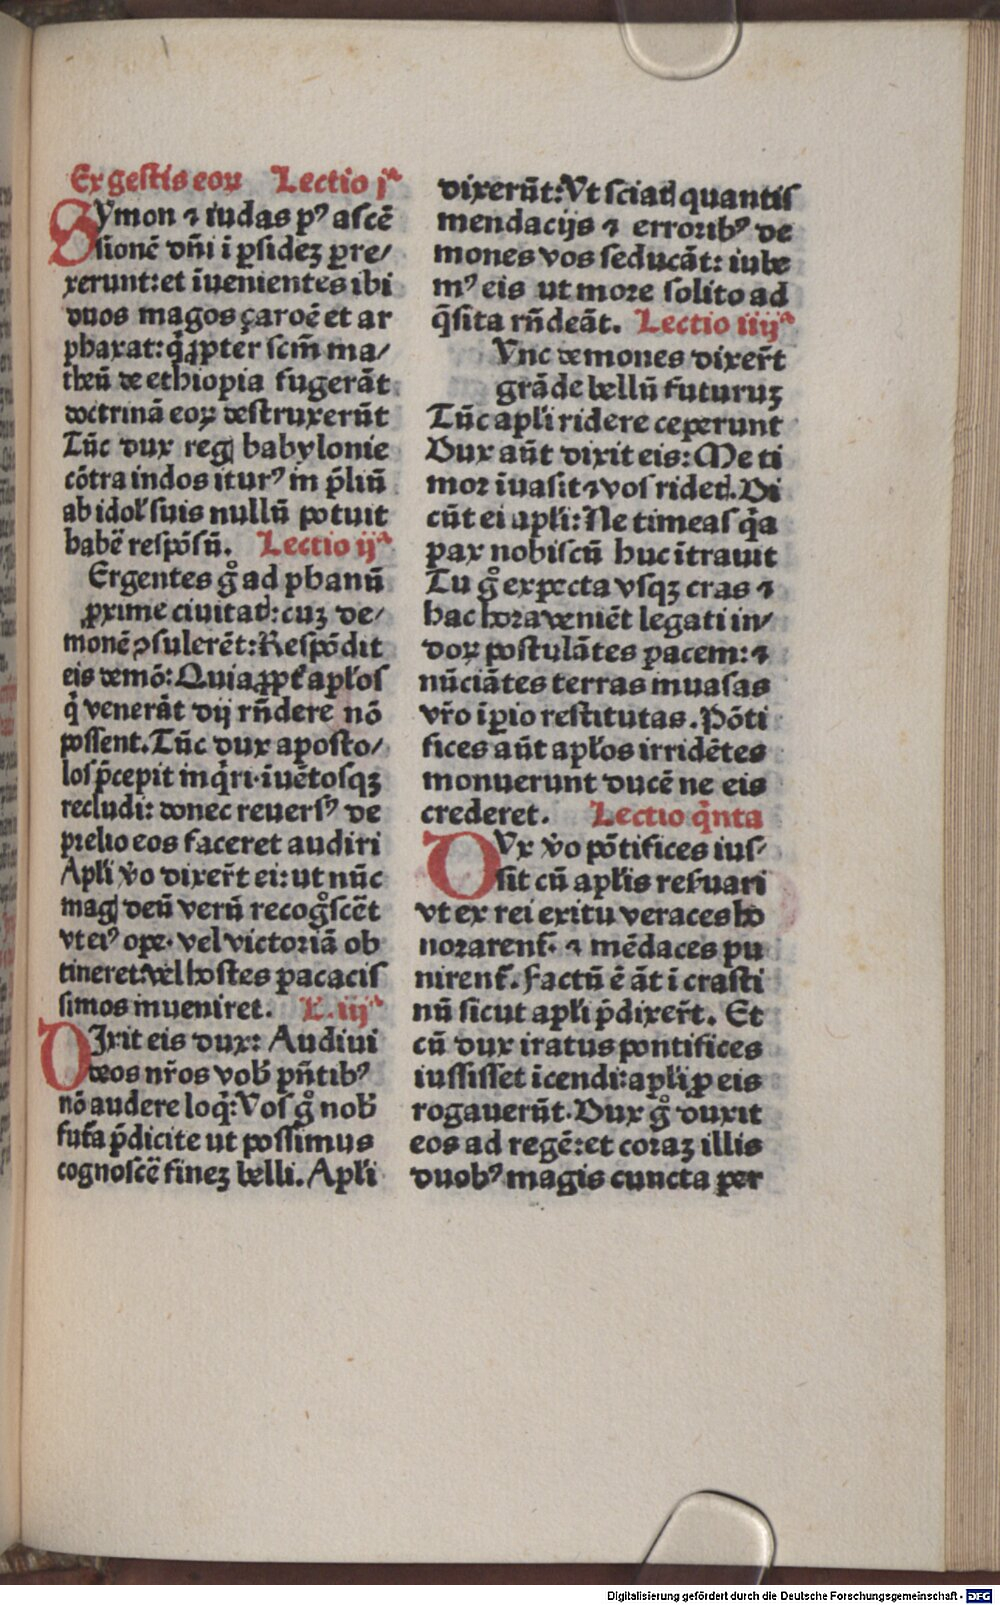 Ex gestis eoꝝ Lectio jª
Symon ⁊ iudas pꝰ ascẽ
sionẽ dñi ĩ ꝑsideʒ ꝑre/
xerunt: et ĩuenientes ibi
duos magos çaroẽ et ar
phaxat: q̃ ꝓpter scm̃ ma/
theũ de ethiopia fugerãt
doctrinã eoꝝ destruxerũt
Tũc dux regꝭ babylonie
cõtra indos iturꝰ in p̃liũ
ab idol̕ suis nullũ potuit
habẽ respõsũ. Lectio ijª
Ergentes g̊ ad phanũ
ꝓxime ciuitatꝭ: cuʒ de/
monẽ ꝯsulerẽt: Respõdit
eis demõ: Quia ꝓpt̕ apl̕os
q̃ venerãt dij rñdere nõ
possent. Tũc dux aposto/
los p̃cepit inq̃ri· ĩuẽtosqʒ
recludi: donec reuersꝰ de
prelio eos faceret audiri
Apl̕i v̊o dixer̃t ei: ut nũc
magꝭ deũ verũ recog̊scẽt
vt eiꝰ ope· vel victoriã ob
tineret: vel hostes pacacis
simos inueniret. L. iijª
DIxit eis dux: Audiui
deos nr̃os vob̕ pñtibꝰ
nõ audere loq̃: Vos g̊ nob̕
fut̕a p̃dicite ut possimus
cognoscẽ fineʒ belli. Apl̕i
dixerũt: Vt sciatꝭ quantis
mendacijs ⁊ erroribꝰ de
mones vos seducãt: iube
mꝰ eis ut more solito ad
q̃sita rñdeãt. Lectio iiijª
Vnc demones dixer̃t
grãde bellũ futuruʒ
Tũc apl̕i ridere ceperunt
Dux aũt dixit eis: Me ti
mor ĩuasit ⁊ vos ridetꝭ. Di
cũt ei apl̕i: Ne timeas q̃a
pax nobiscũ huc ĩtrauit
Tu g̊ expecta vsqʒ cras ⁊
hac hora veniẽt legati in/
doꝝ postulãtes pacem: ⁊
nũciãtes terras inuasas
vr̃o ĩꝑio restitutas. Põti
fices aũt apl̕os irridẽtes
monuerunt ducẽ ne eis
crederet. Lectio q̃nta
DVx v̊o põtifices ius/
sit cũ apl̕is ref̕uari
vt ex rei exitu veraces ho
norarent̕· ⁊ mẽdaces pu
nirent̕. Factũ ẽ ãt ĩ crasti
nũ sicut apl̕i p̃dixer̃t. Et
cũ dux iratus pontifices
iussisset ĩcendi: apl̕i ꝓ eis
rogauerũt. Dux g̊ duxit
eos ad regẽ: et coraʒ illis
duobꝰ magis cuncta per
Digitalisierung gefördert durch die Deutsche Forschungsgemeinschaft - DFG